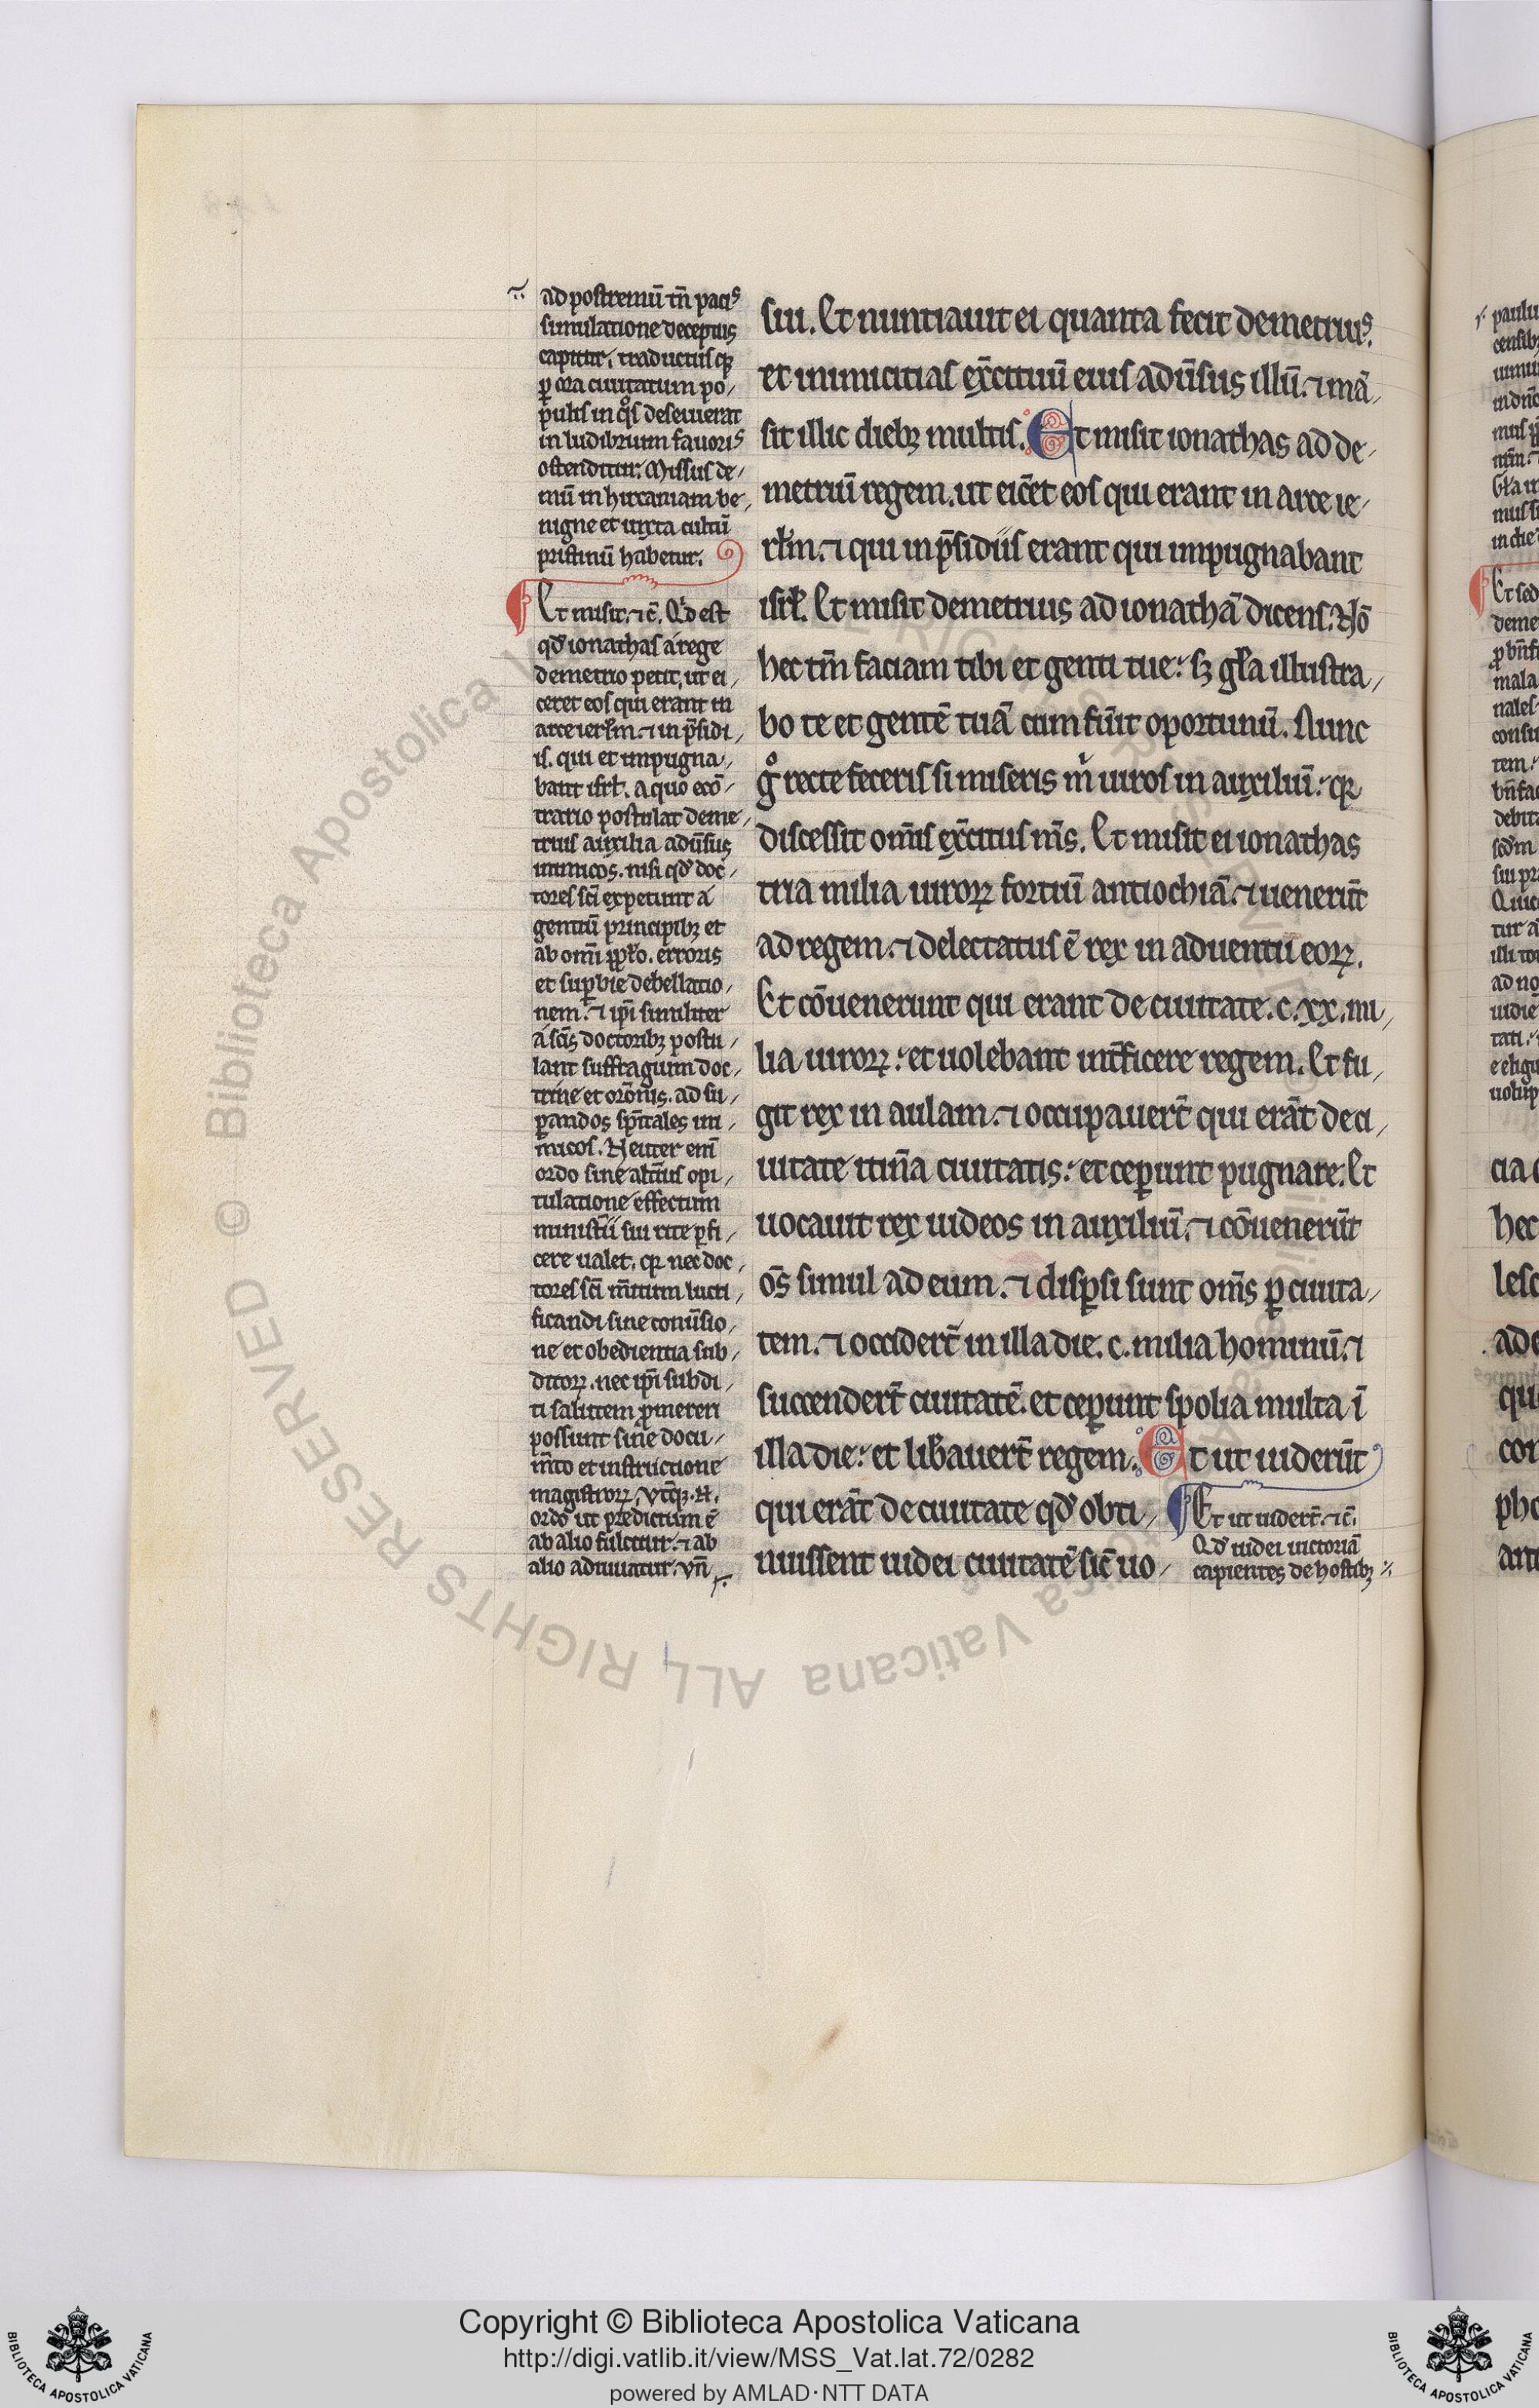 ad postremū tn̄ pacis
simulatione deceptus
capitur. traductusq;
ꝑ ora ciuitatum po/
pulis in qͦs deseuierat
in ludibrium fauoris
ostenditur. Missus de/
mū in hircaniam be/
nigne et iuxta cultū
pristinū habetur.
Et misit. ⁊c̄. Qd̓ est
qd̓ ionathas a rege
demetrio petit, ut ei/
ceret eos qui erant in
arce ierl̄m. ⁊ in p̄sidi/
is. qui et impugna/
bant isrl̄. a quo ecō/
trario postulat deme/
trius auxilia adūsus
inimicos. nisi qd̓ doc/
tores sc̄i expetunt a
gentiū principibꝫ et
ab om̄i pp̄lo. erroris
et suꝑbie debellatio/
nem. ⁊ ip̄i similiter
a sc̄is doctoribꝫ postu/
lant suffragium doc/
trine et orōnis. ad su/
ꝑandos sp̄itales ini/
micos. Neuter enī
ordo sine alt̄ius opi/
tulatione effectum
minist̄ii sui rite ꝑfi/
cere ualet. qꝛ nec doc/
tores sc̄i m̄itum lucri/
ficandi sine conūsio/
ne et obedientia sub/
ditoꝝ. nec ip̄i subdi/
ti salutem ꝓmereri
possunt sine docu/
m̄to et instructione
magistroꝝ. Vtq̄ꝫ .n.
ordo ut predictum ē
ab alio fulcitur. ⁊ ab
alio adiuuatur. vn̄
sui. Et nuntiauit ei quanta fecit demetrius.
et inimicitias exc̄ituū eius adūsus illū. ⁊ mā/
sit illic diebꝫ multis. Et misit ionathas ad de/
metriū regem. ut eic̄et eos qui erant in arce ie/
rl̄m. ⁊ qui in p̄sidiis erant qui impugnabant
isrl̄. Et misit demetrius ad ionathā dicens. Nō
hec tm̄ faciam tibi et genti tue. sꝫ gl̄a illustra/
bo te et gentē tuā cum fūit oportunū. Nunc
gͦ recte feceris si miseris m̓ uiros in auxiliū. qꝛ
discessit om̄is exc̄itus m̄s. Et misit ei ionathas
tria milia uiroꝝ fortiū antiochiā. ⁊ uenerūt
ad regem. ⁊ delectatus ē rex in aduentu eoꝝ.
Et cōuenerunt qui erant de ciuitate .c.xx. mi/
lia uiroꝝ. et uolebant int̄ficere regem. Et fu/
git rex in aulam. ⁊ occupauert̄ qui erāt de ci/
uitate itin̄a ciuitatis. et ceꝑunt pugnare. Et
uocauit rex iudeos in auxiliū. ⁊ cōuenerūt
ōs simul ad eum. ⁊ disꝑsi sunt om̄s ꝑ ciuita/
tem. ⁊ occidert̄ in illa die .c. milia hominū. ⁊
succendert̄ ciuitatē. et ceꝑunt spolia multa ī
illa die. et lib̄auert̄ regem. Et ut uiderūt
qui erāt de ciuitate qd̓ obti/
nuissent iudei ciuitatē sic̄ uo/
Et ut uidert̄. ⁊c̄.
Qd̓ iudei uictoriā
capientes de hostibꝫ
Copyright © Biblioteca Apostolica Vaticana
http://digi.vatlib.it/view/MSS_Vat.lat.72/0282
powered by AMLAD·NTT DATA
BIBLIOTECA APOSTOLICA VATICANA
BIBLIOTECA APOSTOLICA VATICANA